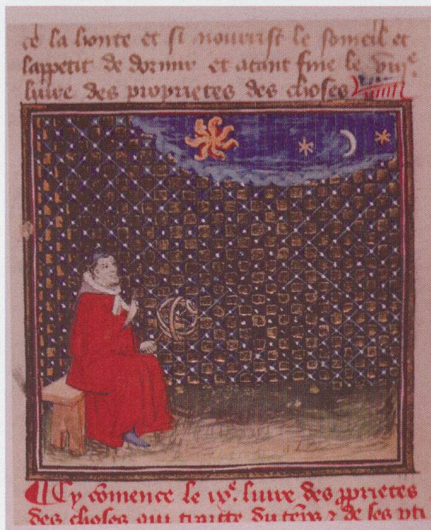 ce la honte et si nourrist le someil et
lappetit de dormir et atant fine le viije
livre des proprietes des choses
Cy cōmence le ixe. livre des ꝓprietes
des choses qui traitte du tēps ⁊ de ses